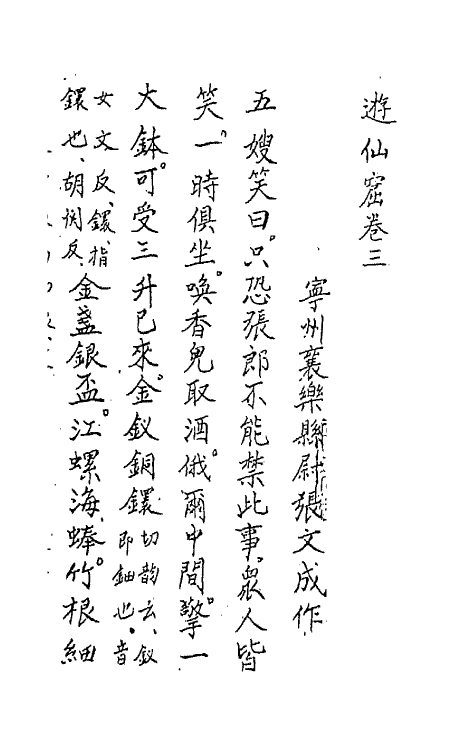 遊仙窟卷三
寧州襄樂縣尉張文成作
五嫂笑曰。只恐張郎不能禁此事。眾人皆
笑。一時俱坐。喚香兒取酒。俄爾中間。擎一
大鉢。可受三升已來。金釵銅鐶切韵云、釵即鈿也。音
女文反、鐶、指鐶也、胡関反、金盞銀盃。江螺海蜯。竹根細